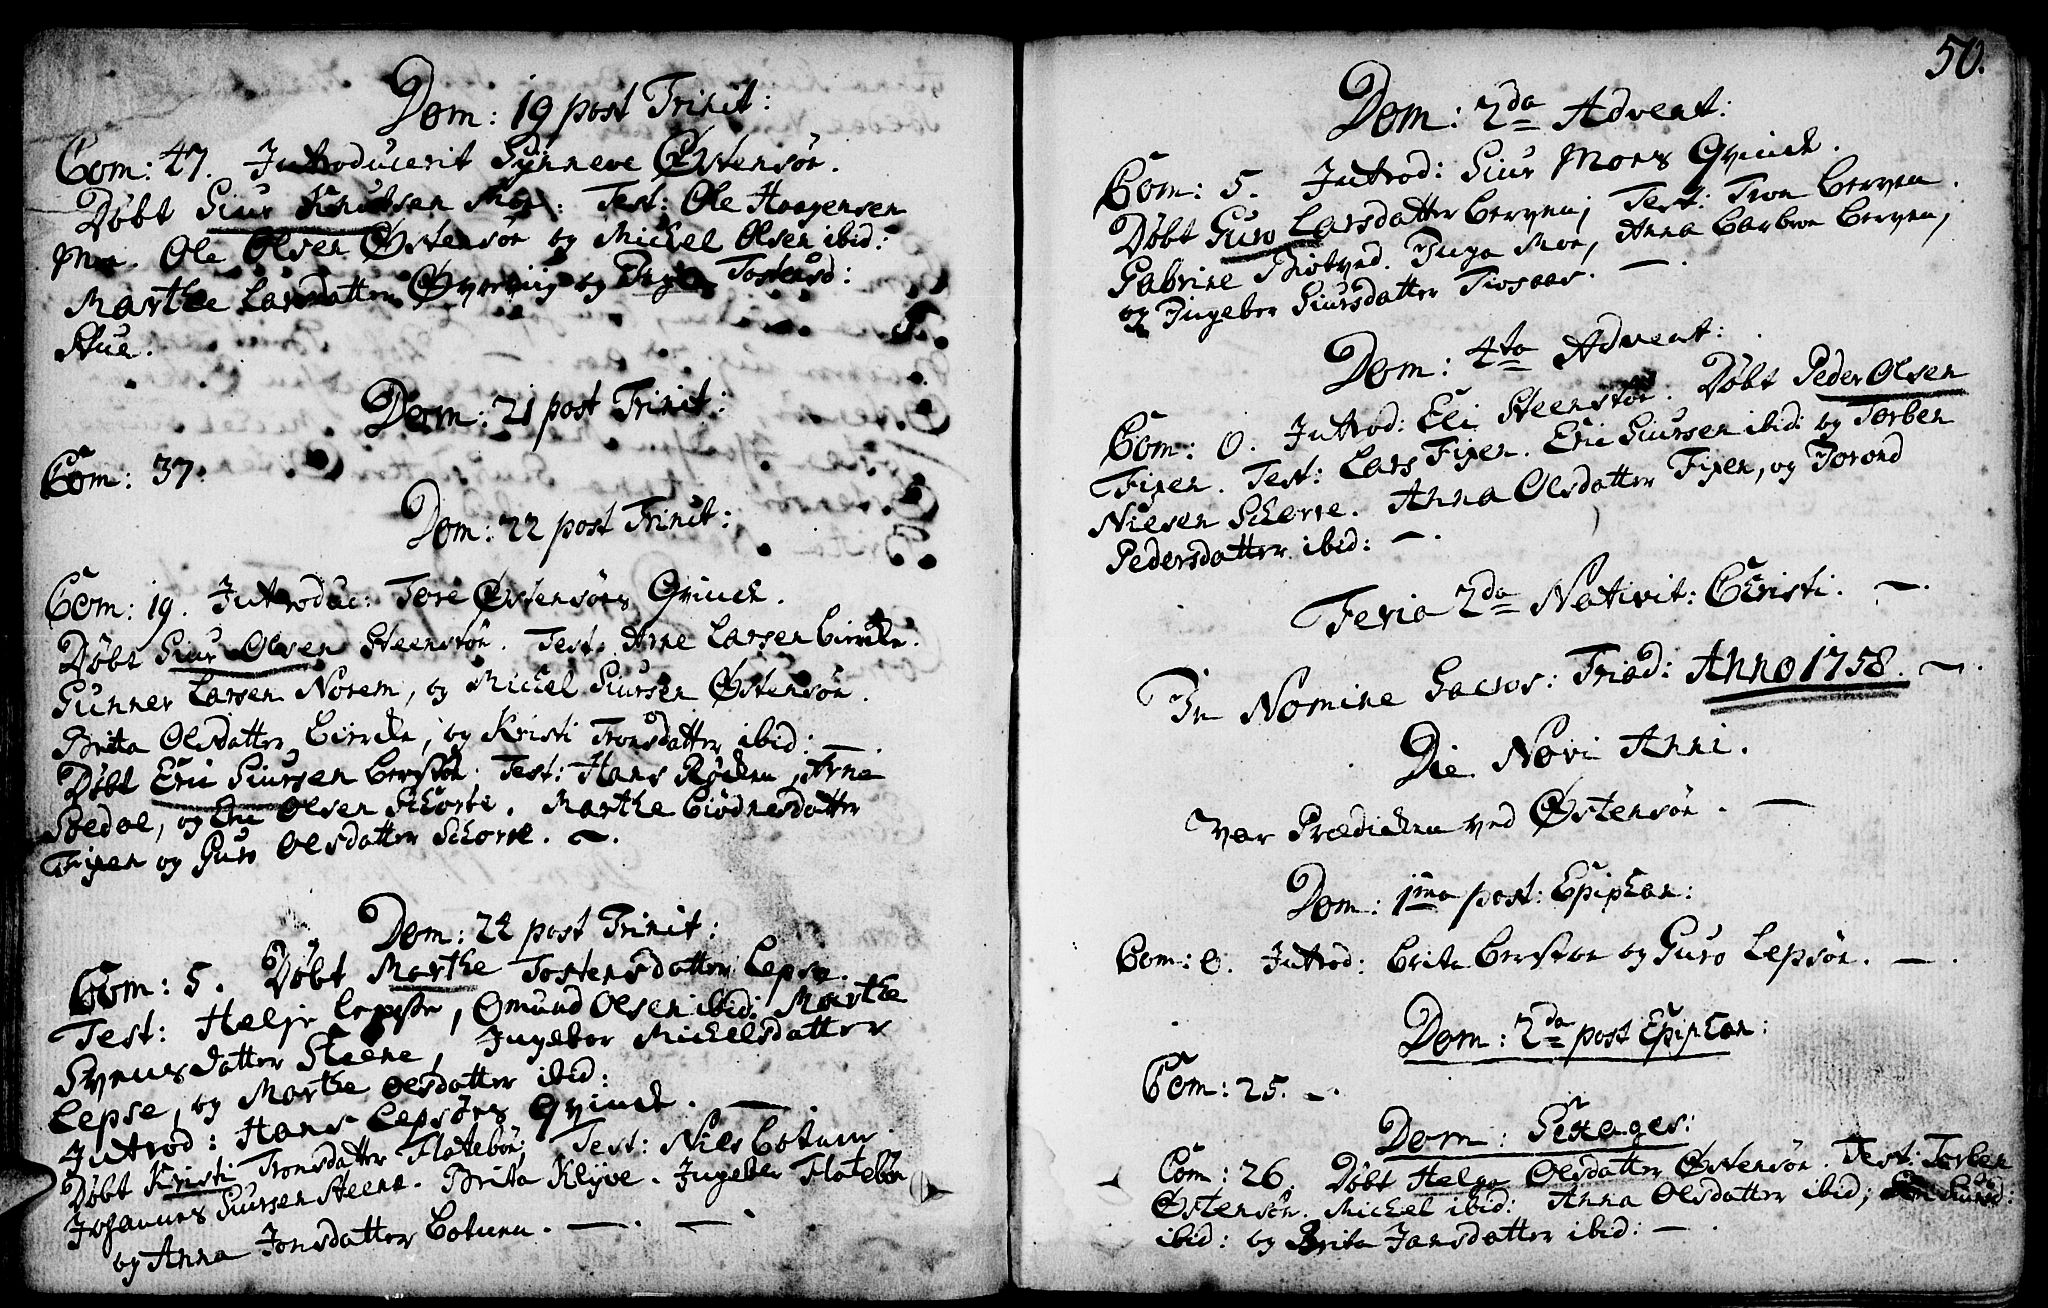 Dom: 19 post Trinit:
Com: 47. Introducerit Synneve Østensøn.
Døbt Siur Knutsen Moe: Test: Ole Haagensen
Moe. Ole Olsen Østensøn og Michel Olsen ibid:
Marthe Larsdatter og Tostensd:
Stue.
Dom: 21 post Trinit:
Com: 37.
Dom: 22 post Trinit:
Com: 19. Introduc: Tore Østensøns Qvinde.
Døbt Siur Olsen Steenstøe. Test. Arne Larsen
Gunner Larsen Norem, og Michel Siursen Østensøn.
Brita Olsdatter og Kristi Tronsdatter ibid:
Døbt Eric Siursen Berstøe. Test: Hans Arne
og Eric Olsen Schorre. Marthe
Fixen og Guro Olsdatter Schorre. —.
Dom: 24 post Trinit:
Com: 5. Døbt Marthe Tostensdatter Lepse.
Test: Helje Lepsøe, Omund Olsen ibid: Marthe
Svensdatter Steene, Ingebor Michelsdatter
Lepse, og Marthe Olsdatter ibid:
Introd: Hans Lepsøns Qvinde. —.
Døbt Kristi Tronsdatter Flotebøn; Test: Niels Botunn.
Johannes Siursen Steene. Brita Klyve. Ingebor Flotebøn
og Anna Jonsdatter Botunn. —. —.
50.
Dom: 2da Advent:
Com: 5. Introd: Siur Moes Qvinde.
Døbt Guro Larsdatter Berven; Test: Tron Berven.
Gabrine Inga Moe, Anna Barbroe Berven,
og Ingebor Siursdatter —.
Dom: 4ta Advent:
Com: 0. Introd: Eli Steenstøe. Døbt Peder Olsen
Fixen. Test: Lars Fixen. Eric Siursen ibid: og Torben
Nielsen Schorre. Anna Olsdatter Fixen, og Torond
Pedersdatter ibid: —.
Feria 2da Nativit: Christi. —.
In Nomine Sacros: Triad: Anno 1758. —.
Die Novi Anni.
Var Prædicken ved Østensøn. —
Dom: 1ma post: Epiphan:
Com: 0. Introd: Brita Berstøe og Guro Lepsøn. —.
Dom: 2da post Epiphan:
Com: 25. —.
Dom: Sexages:
Com: 26. Døbt Helga Olsdatter Østensøn. Test: Torben
Østensøn. Michel ibid: Anna Olsdatter ibid; Siursd:
ibid: og Brita Jansdatter ibid: —.